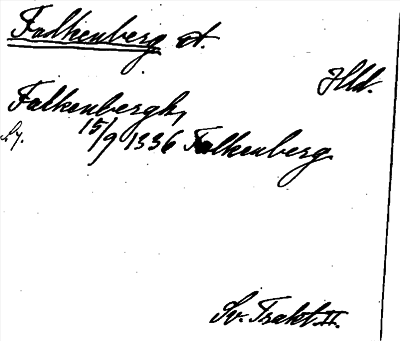 Falkenberg st.
Hld.
Falkenbergh,
15/9 1336 Falkenberg
Sv. Trakt. II.